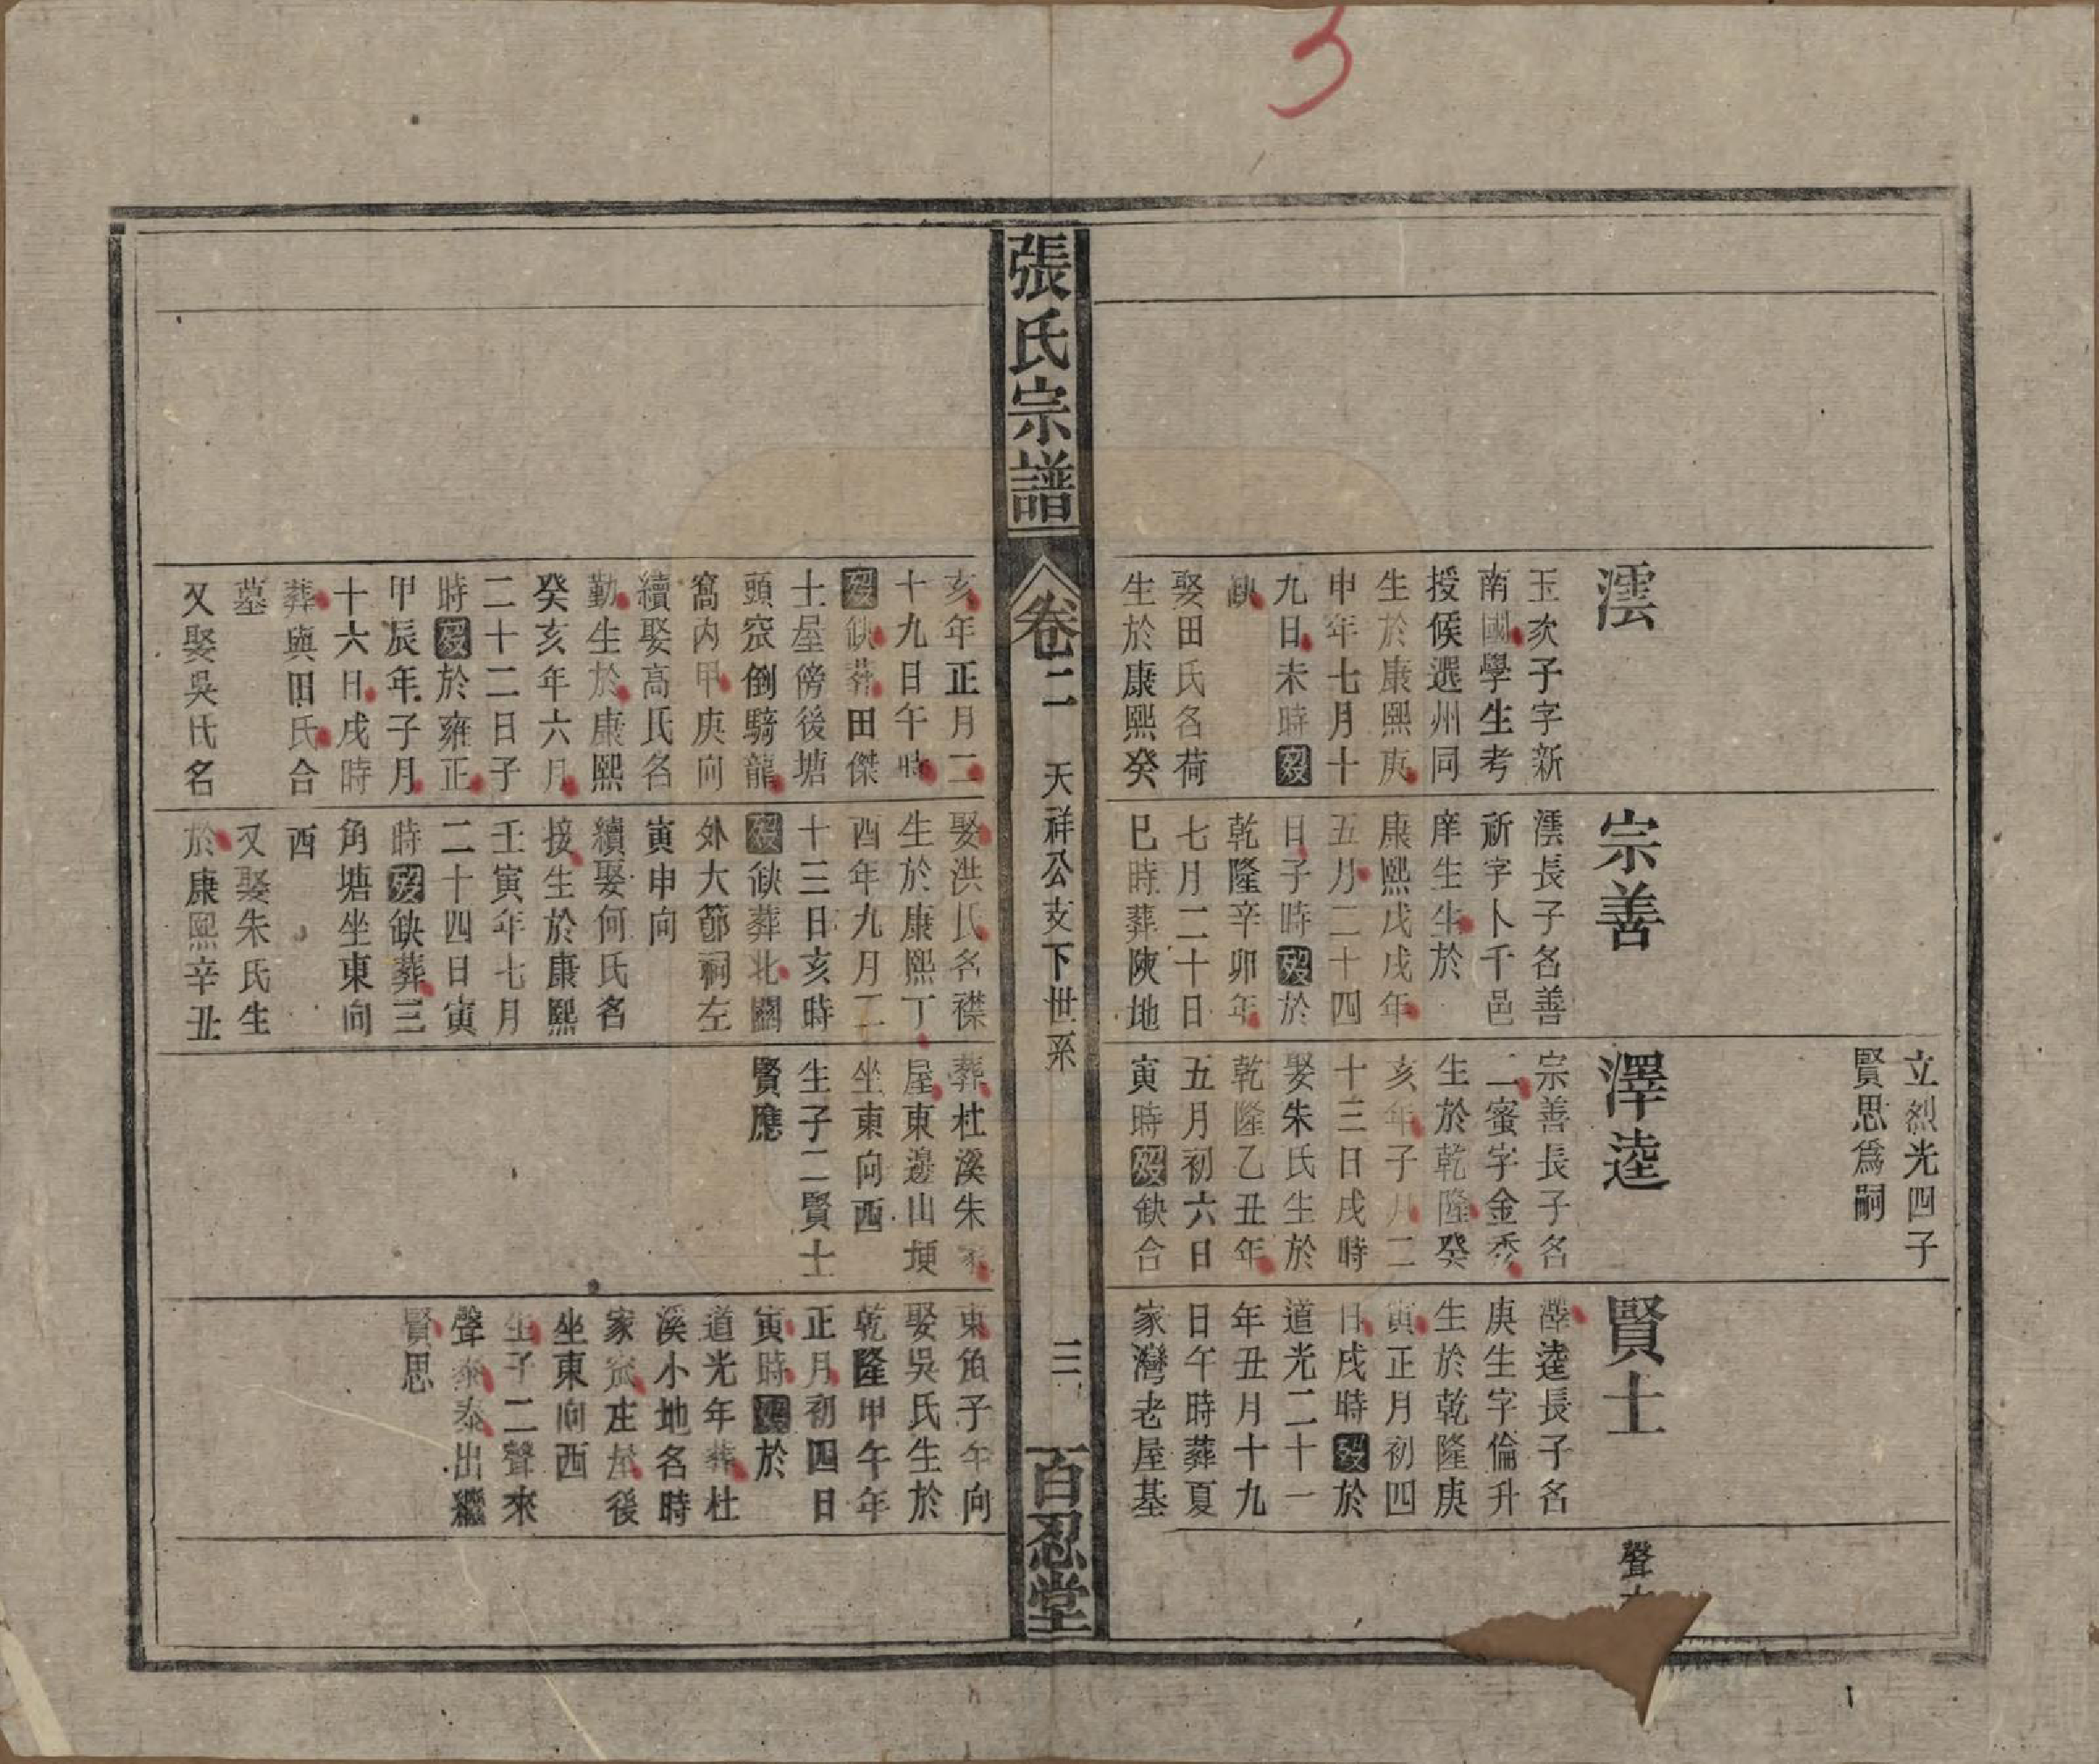 3
立烈光四子
賢思爲嗣
澐
玉次子字新
南國學生考
授候選州同
生於康熙庚
申年七月十
九日未時殁
缺
娶田氏名荷
生於康熙癸
宗善
澐長子名善
祈字卜千邑
庠生生於
康熙戊戌年
五月二十四
日子時殁於
乾隆辛卯年
七月二十日
巳時葬陳地
澤逵
宗善長子名
二蜜字金秀
生於乾隆癸
亥年子月二
十三日戌時
娶朱氏生於
乾隆乙丑年
五月初六日
寅時殁缺合
賢士
澤逵長子名
庚生字倫升
生於乾隆庚
寅正月初四
日戌時殁於
道光二十一
年丑月十九
日午時葬夏
家灣老屋基
聲
張氏宗譜
卷二
天祥公支下世系
三
百忍堂
亥年正月二
十九日午時
殁缺葬田傑
士屋傍後塘
頭宼倒騎龍
窩内甲庚向
續娶高氏名
勤生於康熙
癸亥年六月
二十二日子
時殁於雍正
甲辰年子月
十六日戌時
葬與田氏合
墓
又娶吳氏名
娶洪氏名襟
生於康熙丁
酉年九月二
十三日亥時
殁缺葬北關
外大節祠左
寅申向
續娶何氏名
接生於康熙
壬寅年七月
二十四日寅
時殁缺葬三
角塘坐東向
西
又娶朱氏生
於康熙辛丑
葬杜溪朱家
屋東邊山埂
坐東向西
生子二賢士
賢應
東角子午向
娶吳氏生於
乾隆甲午年
正月初四日
寅時殁於
道光年葬杜
溪小地名時
家庄屋後
坐東向西
生子二聲來
聲泰泰出繼
賢思